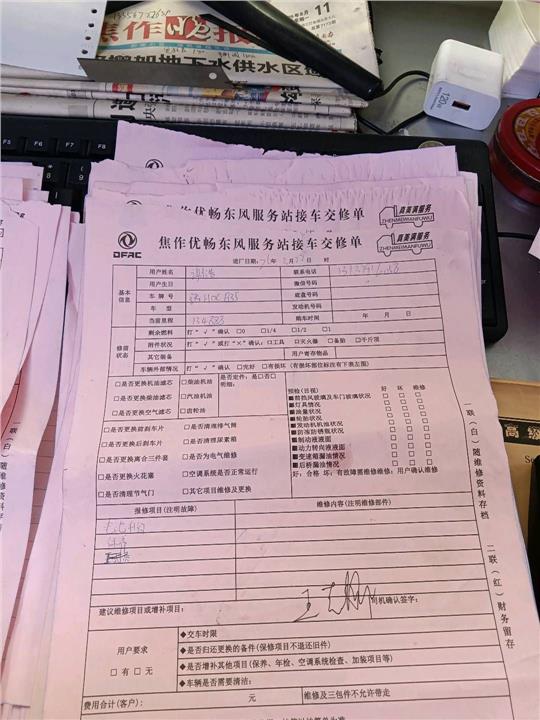 焦作
晚报
11
星期一
第7173期
地下水供水区
120W
F5 F6 F7 F8
焦作优畅东风服务站接车交修单
真美满服务
ZHENMEIMANFUWU
DFAC
焦作优畅东风服务站接车交修单
真美满服务
ZHENMEIMANFUWU
进厂日期: 年 月 日 时
基本信息
用户姓名
联系电话
用户生日
微信号码
车牌号
底盘号码
车型
发动机号码
当前里程
购车时间 年 月 日
修前状态
剩余燃料 打“√”确认 □0 □1/4 □1/2 □1
附件状况 打“√”或打“×”确认：□工具 □灭火器 □备胎 □千斤顶
其它装备 用户寄存物品
车辆外部情况 打“√”确认 □完好 □有损坏（有损坏部位标注有下表左图）
□是否更换机油滤芯 □柴油机油
□是否更换柴油滤芯 □汽油机油
□是否更换空气滤芯 □齿轮油
是否定件：是□否□
明细：
□是否更换前刹车片 □是否清理排气筒
□是否更换后刹车片 □是否清理尿素箱
□是否更换离合三件套 □是否为电气维修
□是否更换火花塞 □空调系统是否正常运行
□是否清理节气门 □其它项目维修及更换
预检(目视) 好 坏 维修
■前挡风玻璃及车门玻璃状况 □ □ □
■灯具情况 □ □ □
■油量状况 □ □ □
■轮胎状况 □ □ □
■发动机机油状况 □ □ □
■防冻防锈瓶状况 □ □ □
■制动液液面 □ □ □
■动力转向液液面 □ □ □
■变速箱漏油情况 □ □ □
■后桥漏油情况 □ □ □
好：合格 坏：有故障需维修维修：用户确认维修
报修项目(注明故障)
维修内容(注明维修部件)
建议维修项目或增补项目：
司机确认签字：
用户要求
□有 □无
◆交车时限
◆是否归还更换的备件(保修项目不退还旧件)
◆是否增补其他项目(保养、年检、空调系统检查、加装项目等)
◆车辆是否需要清洁：
费用合计(客户)： 元 维修及三包件不允许带走
一联(白)随维修资料存档
二联(红)财务留存